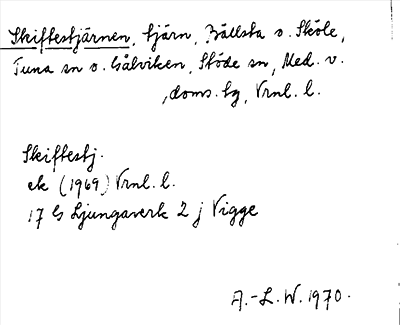 Skiftestjärnen, tjärn, Bällsta o. Sköle,
Tuna sn o. Gålviken, Stöde sn, Med. v.
, doms. tg, Vrnl. l.
Skiftestj.
ek (1969) Vrnl. l.
17 G Ljungaverk 2 j Vigge
A.-L. W. 1970.